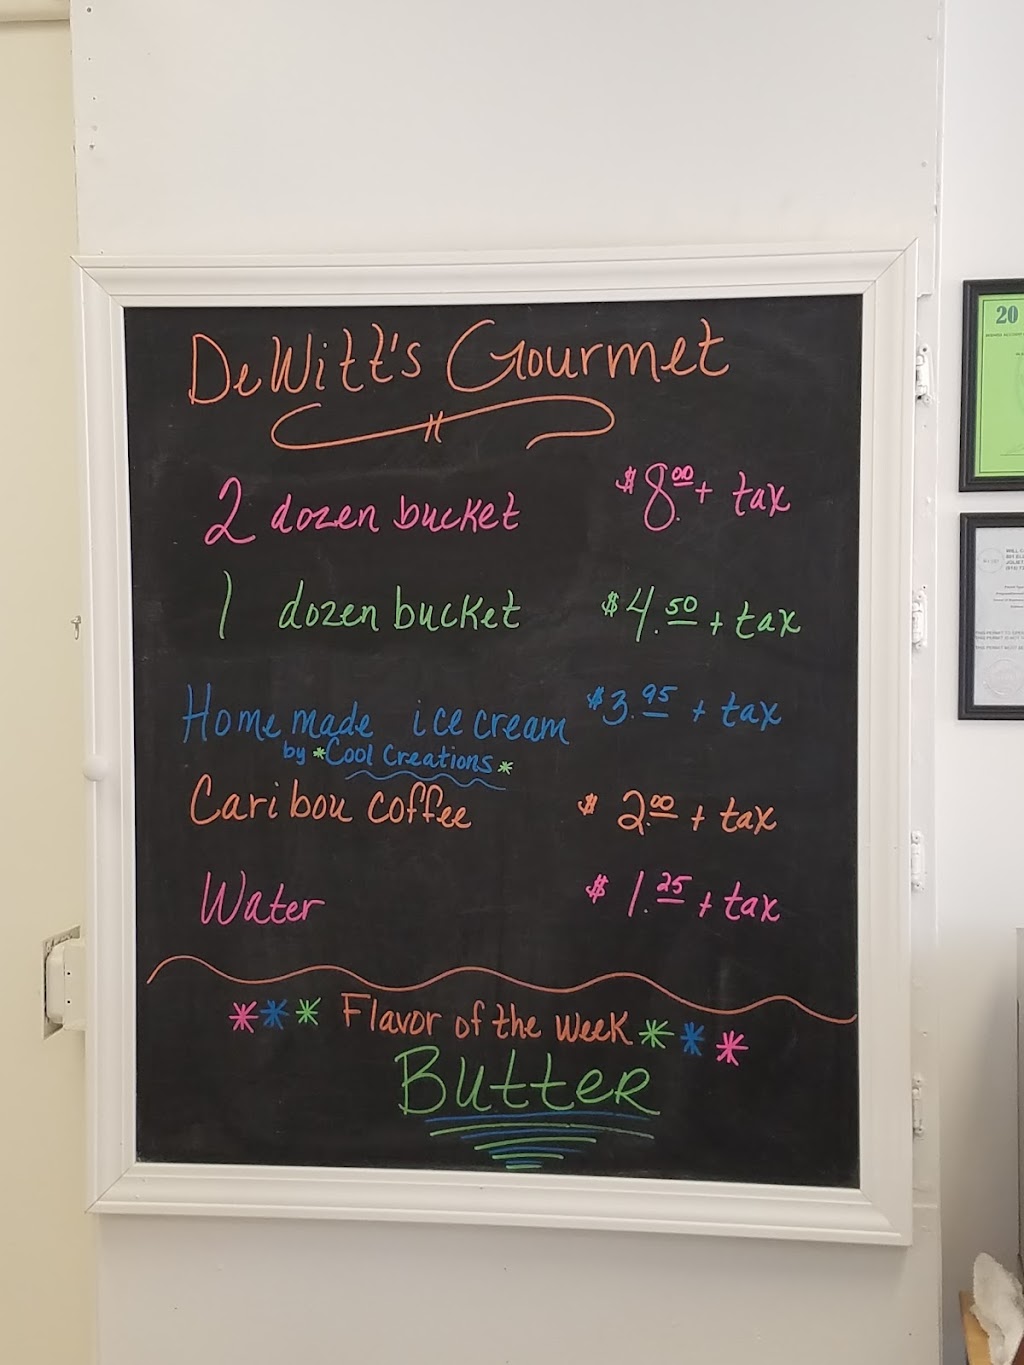 DeWitt's Gourmet
2 dozen bucket $8.00 + tax
1 dozen bucket $4.50 + tax
Homemade ice cream $3.95 + tax
by *Cool Creations*
Caribou coffee $2.00 + tax
Water $1.25 + tax
*** Flavor of the Week ***
Butter
20